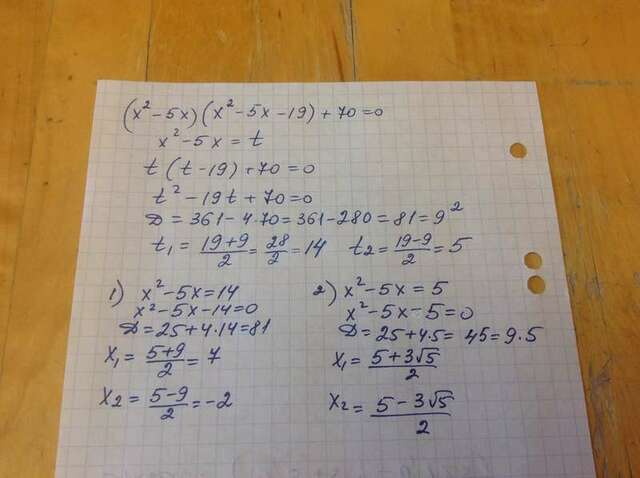 (x²-5x)(x²-5x-19)+70=0
x²-5x=t
t(t-19)+70=0
t²-19t+70=0
D=361-4·70=361-280=81=9²
t₁=(19+9)/2=28/2=14 t₂=(19-9)/2=5
1) x²-5x=14
x²-5x-14=0
D=25+4·14=81
x₁=(5+9)/2=7
x₂=(5-9)/2=-2
2) x²-5x=5
x²-5x-5=0
D=25+4·5=45=9·5
x₁=(5+3√5)/2
x₂=(5-3√5)/2